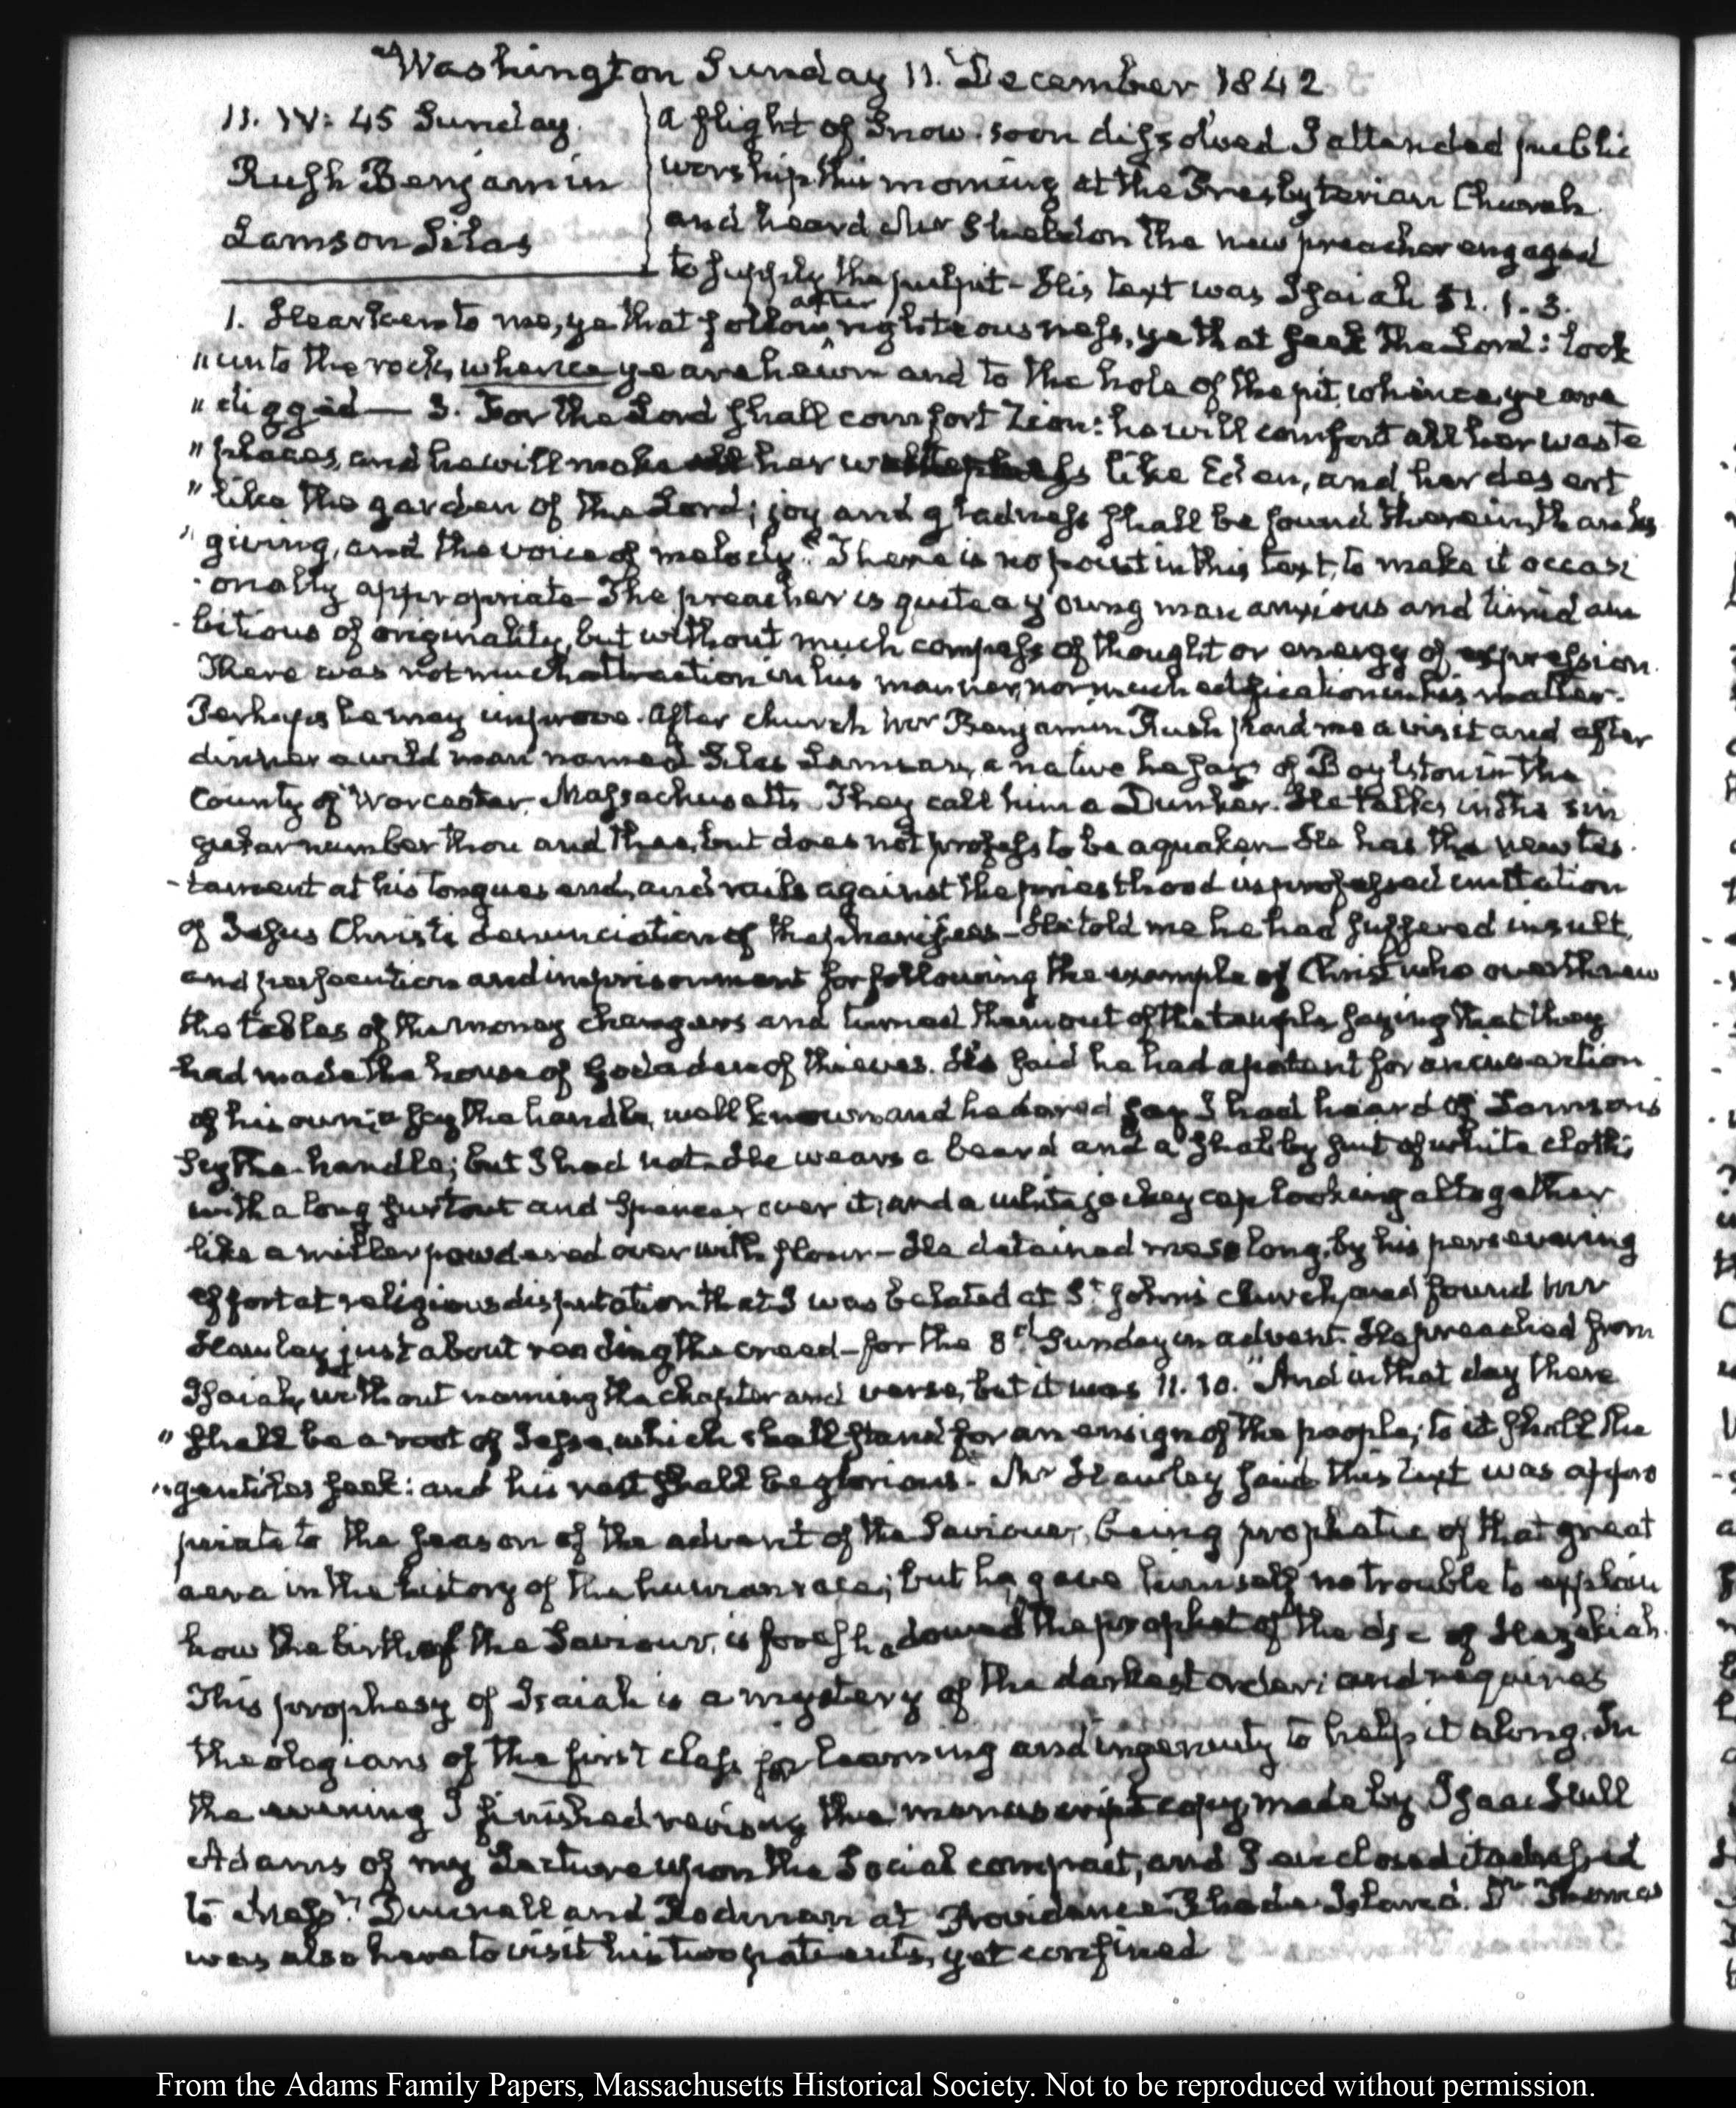 Washington Sunday 11. December 1842
11. IV: 45 Sunday.
Rush Benjamin
Lamson Silas
A flight of Snow. soon dissolved I attended public
worship this morning at the Presbyterian Church
and heard Mr Sheldon the new preacher engaged
to supply the pulpit – His text was Isaiah 51. 1. 3.
1. Hearken to me, ye that follow after righteousness, ye that seek the Lord: look
"unto the rock, whence ye are hewn and to the hole of the pit whence, ye are
"digged — 3. For the Lord shall comfort Zion: he will comfort all her waste
"places, and he will make her like Eden, and her desert
"like the garden of the Lord; joy and gladness shall be found therein, thanks
"giving, and the voice of melody." There is no point in this text, to make it occasi
-onally appropriate – The preacher is quite a young man anxious and timid am
-bitious of originality, but without much compass of thought or energy of expression.
There was not much attraction in his manner, nor much edification in his matter.
Perhaps he may improve. After church Mr Benjamin Rush paid me a visit and after
dinner a wild man named Silas Lamson, a native he says of Boylston in the
County of Worcester, Massachusetts. They call him a Dunker. He talks in the sin
gular number thou and thee, but does not profess to be a quaker – He has the new tes
-tament at his tongues end, and rails against the priesthood in professed imitation
of Jesus Christ's denunciation of the pharisees – He told me he had suffered insult,
and persecution and imprisonment for following the example of Christ who overthrew
the tables of the money changers and turned them out of the temple saying that they
had made the house of God a den of thieves. He said he had a patent for an invention
of his own; a scythe handle, well known and he dared say I had heard of Lamson's
scythe-handle; but I had not – He wears a beard and a shabby suit of white cloth;
with a long surtout and Spencer over it, and a white jockey cap looking altogether
like a miller powdered over with flour – He detained me so long, by his persevering
effort at religious disputation that I was belated at St. John's church, and found Mr
Hawley just about reading the creed – for the Sunday in advent. He preached from
Isaiah, without naming the chapter and verse, but it was 11. 10. "And in that day there
"shall be a root of Jesse, which shall stand for an ensign of the people; to it shall the
"gentiles seek: and his rest shall be glorious. Mr Hawley said this text was appro
priate to the season of the advent of the Saviour, being prophetic of that great
aera in the history of the human race; but he gave himself no trouble to explain
how the birth of the Saviour, is foreshadowed the prophet of the age of Hezekiah.
This prophesy of Isaiah is a mystery of the darkest order; and requires
theologians of the first class for learning and ingenuity to help it along. In
the evening I finished revising the manuscript copy, made by Isaac Hull
Adams of my Lecture upon the Social compact, and I enclosed it addressed
to Messrs. Burnall and Rodman at Providence Rhode Island. Dr Thomas
was also here to visit his two patients, yet confined
From the Adams Family Papers, Massachusetts Historical Society. Not to be reproduced without permission.